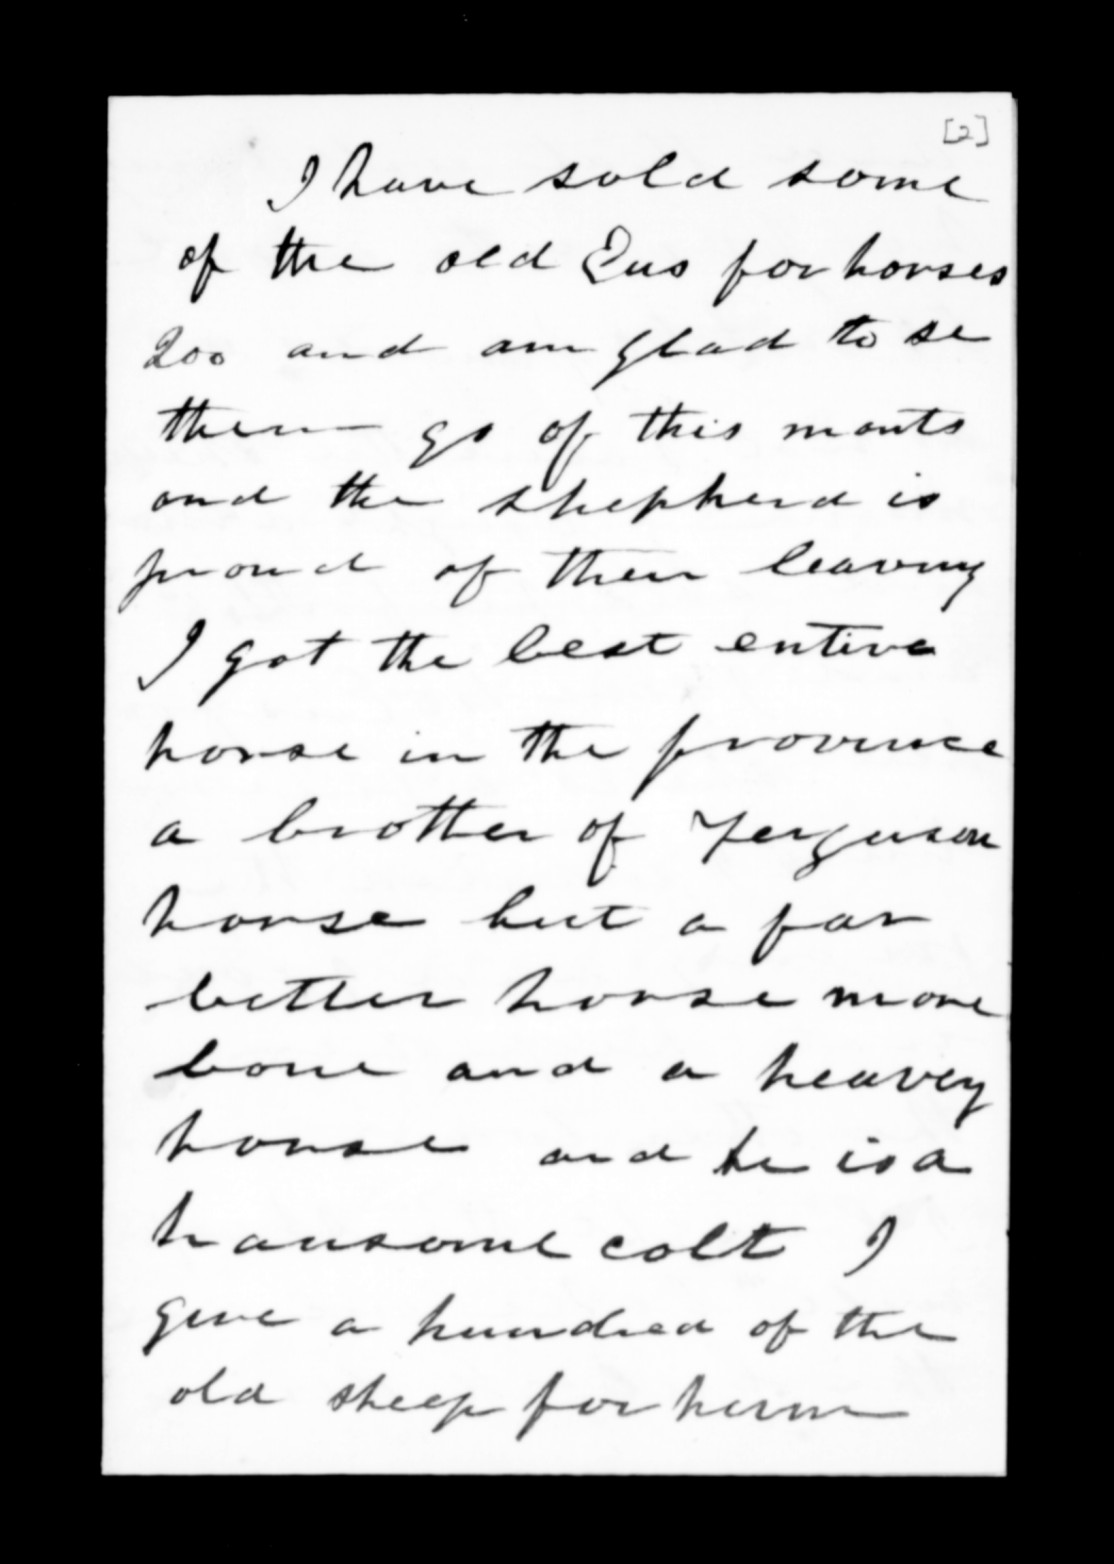 [2]
I have sold some
of the old Eus for horses
200 and am glad to se
them go of this monts
and the shepherd is
proud of their leaving
I got the best entire
horse in the province
a brother of Ferguson
horse but a far
better horse more
bone and a heavey
horse and he is a
hansome colt I
give a hundred of the
old sheep for him